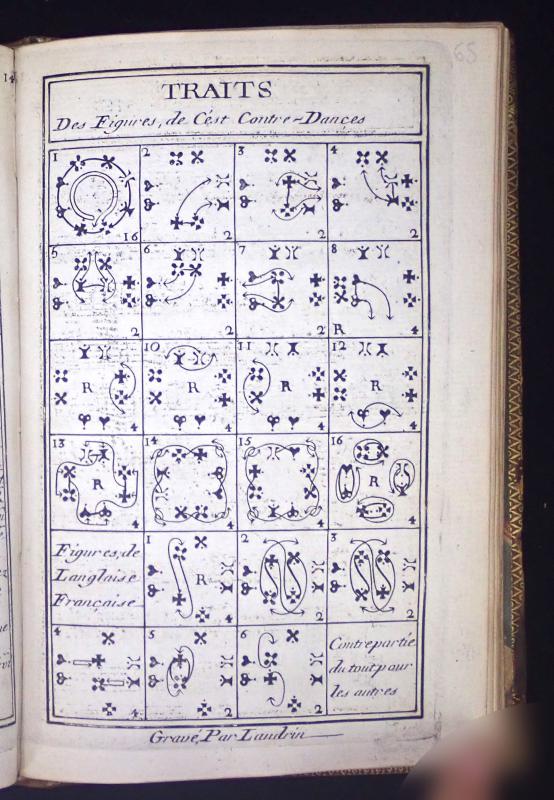 65
14
TRAITS
Des Figures, de Cest Contre-Dances
1 2 3 4
16 2 2 2
5 6 7 8
R
2 2 2 4
10 11 12
R R R R
4 4 4 4
13 14 15 16
R R
4 4 4 4
Figures, de
Langlaise
Française
1 2 3
R
4 2 2
4 5 6
4 2 2
Contrepartie
du tout pour
les autres
Gravé, Par Landrin